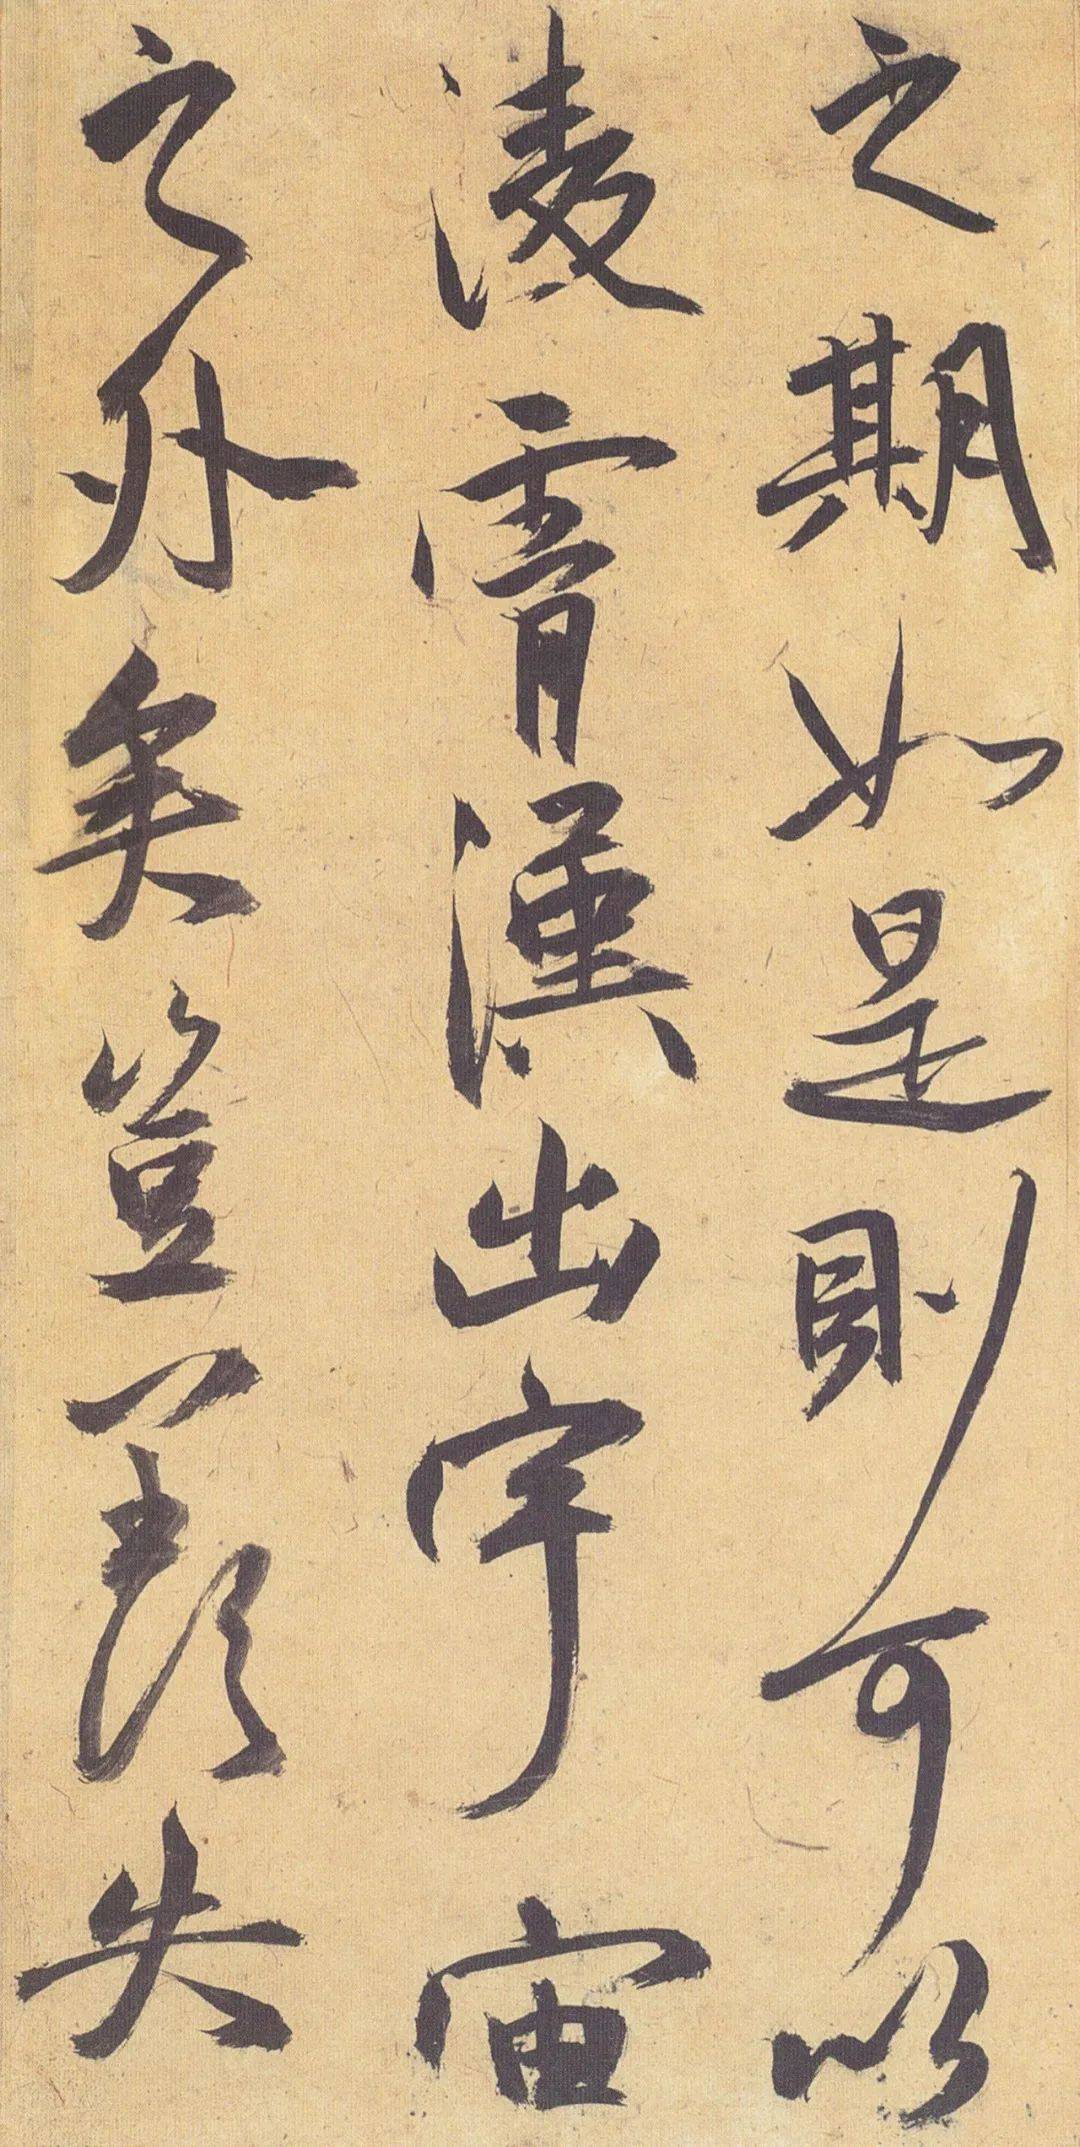 之期如是則可以
淩霄漢出宇宙
之外矣豈羨夫